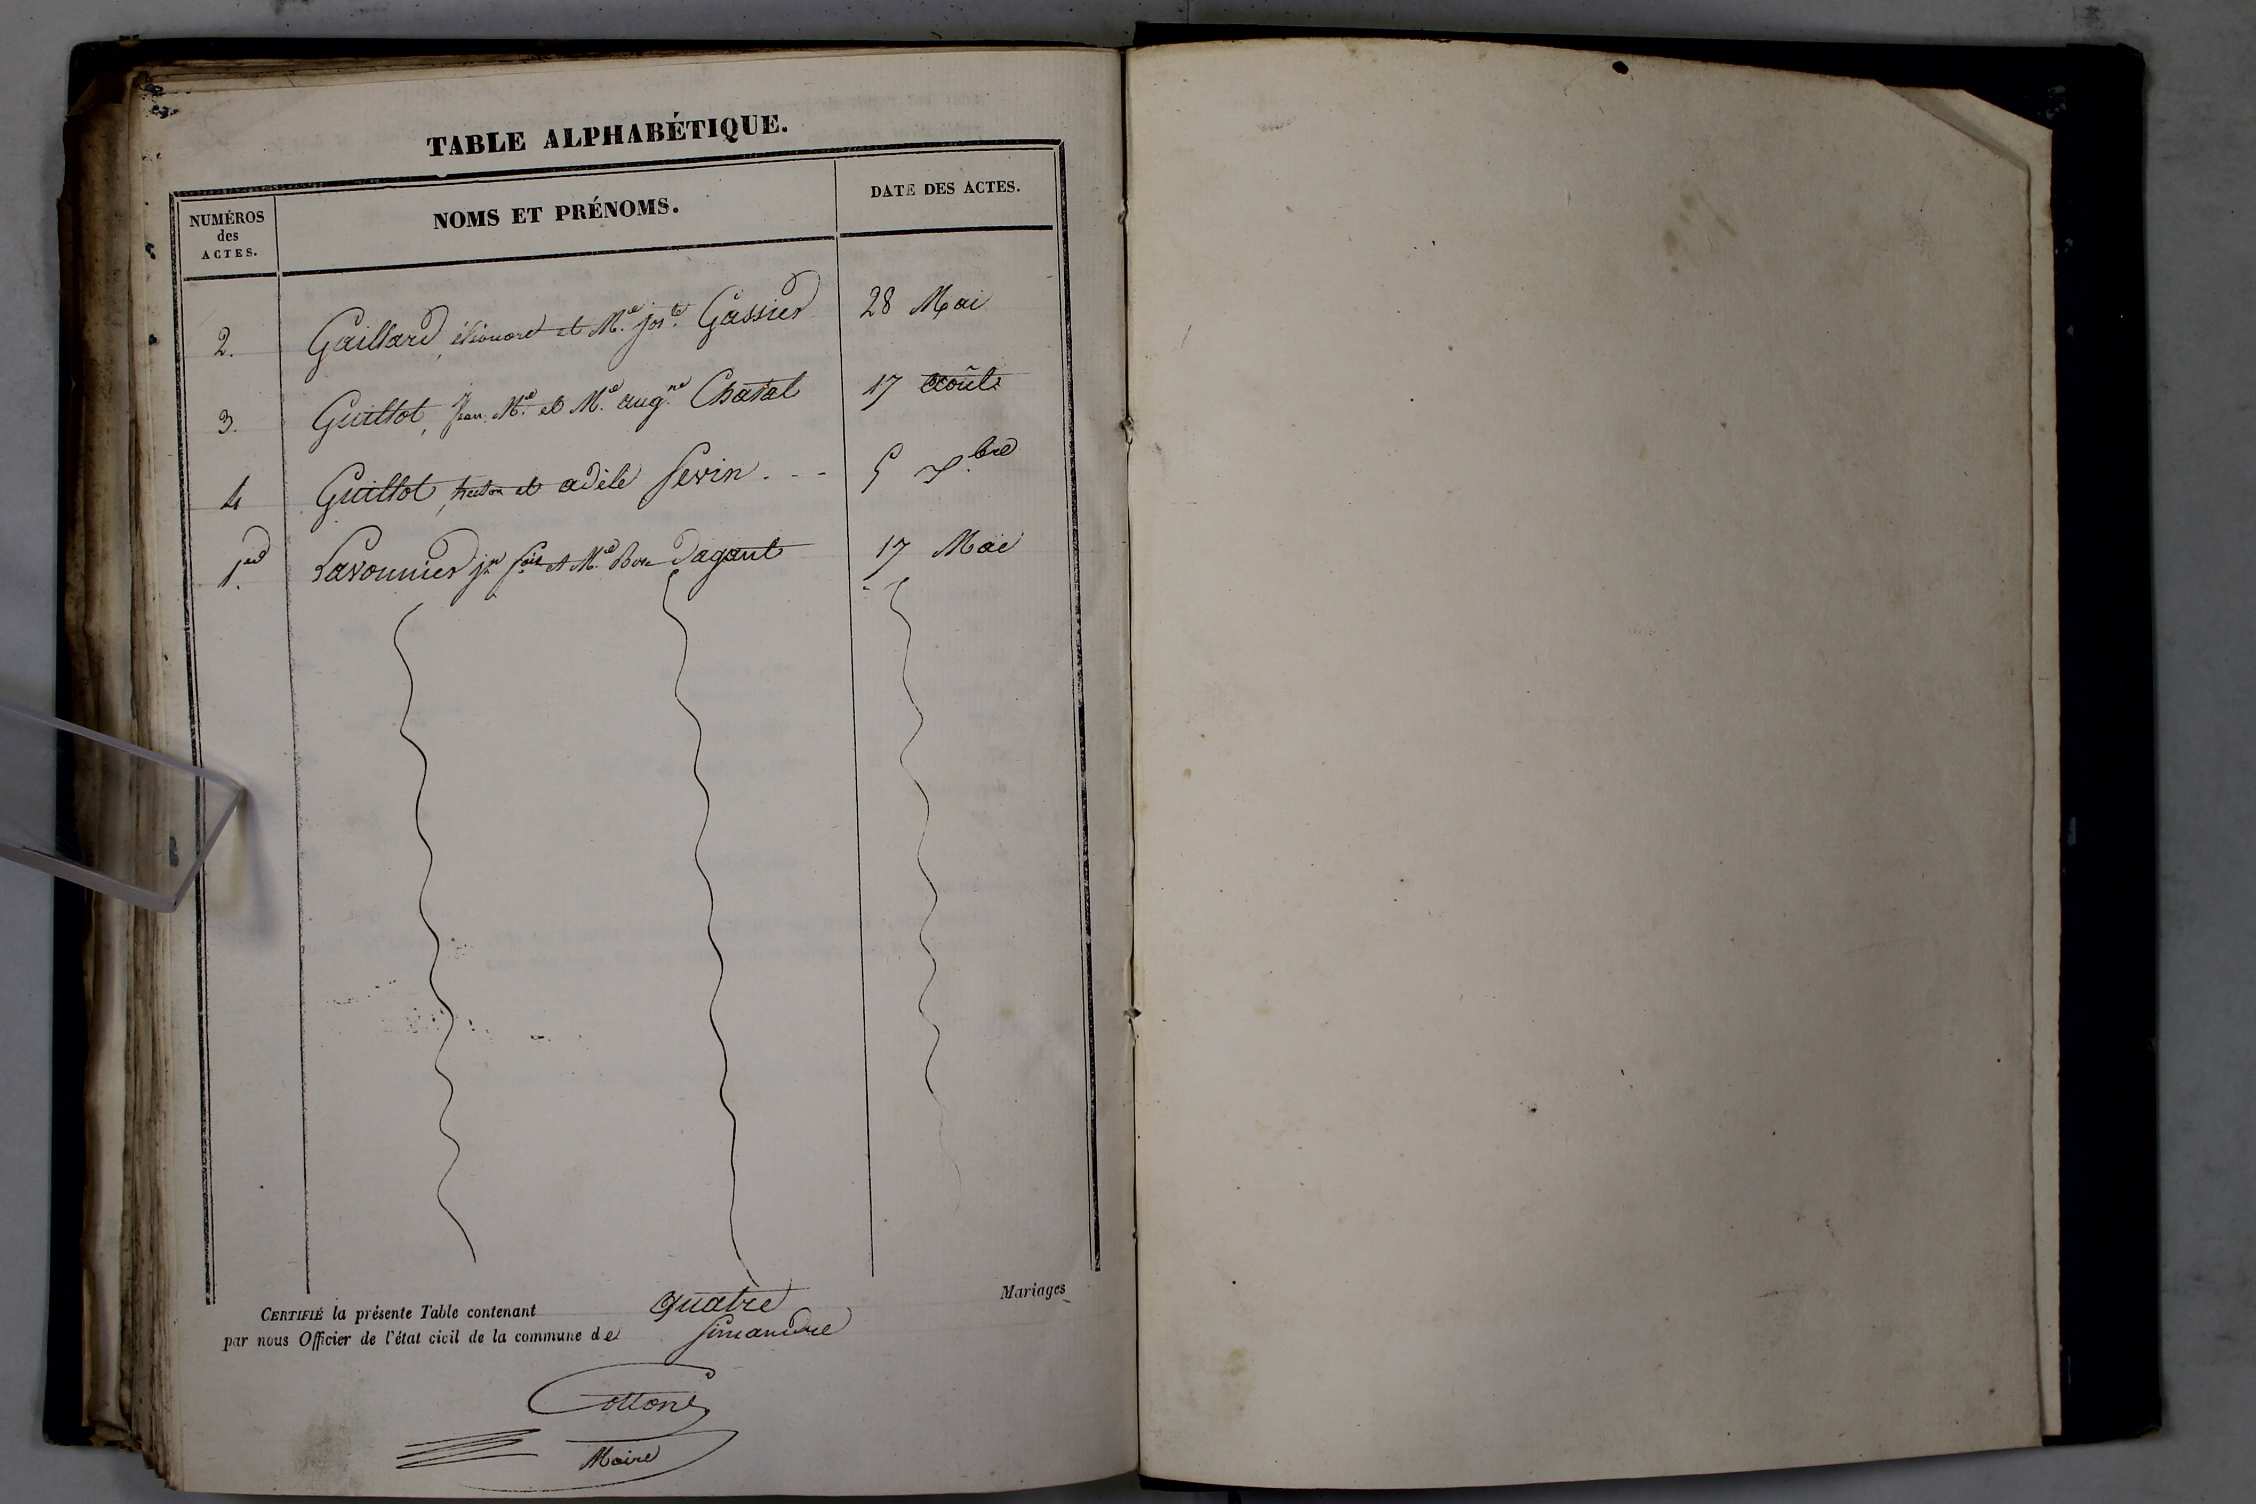 TABLE ALPHABÉTIQUE.
NUMÉROS
des
ACTES.
NOMS ET PRÉNOMS.
DATE DES ACTES.
2. Gaillard, éléonore et M.ie Jos.te Gassier 28 Mai
3. Guillot, Jean M.ie et M.ie aug.ne Chatal 17 août
4 Guillot, et adèle Sevin. - - 5 bre
1er Savonnier jn fois et M.ie Dagant 17 Mai
CERTIFIÉ la présente Table contenant quatre Mariages
par nous Officier de l'état civil de la commune de Simandre
Cottons
Maire